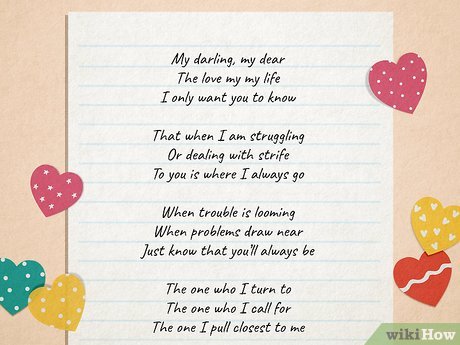 My darling, my dear
The love my my life
I only want you to know
That when I am struggling
Or dealing with strife
To you is where I always go
When trouble is looming
When problems draw near
Just know that you'll always be
The one who I turn to
The one who I call for
The one I pull closest to me
wikiHow